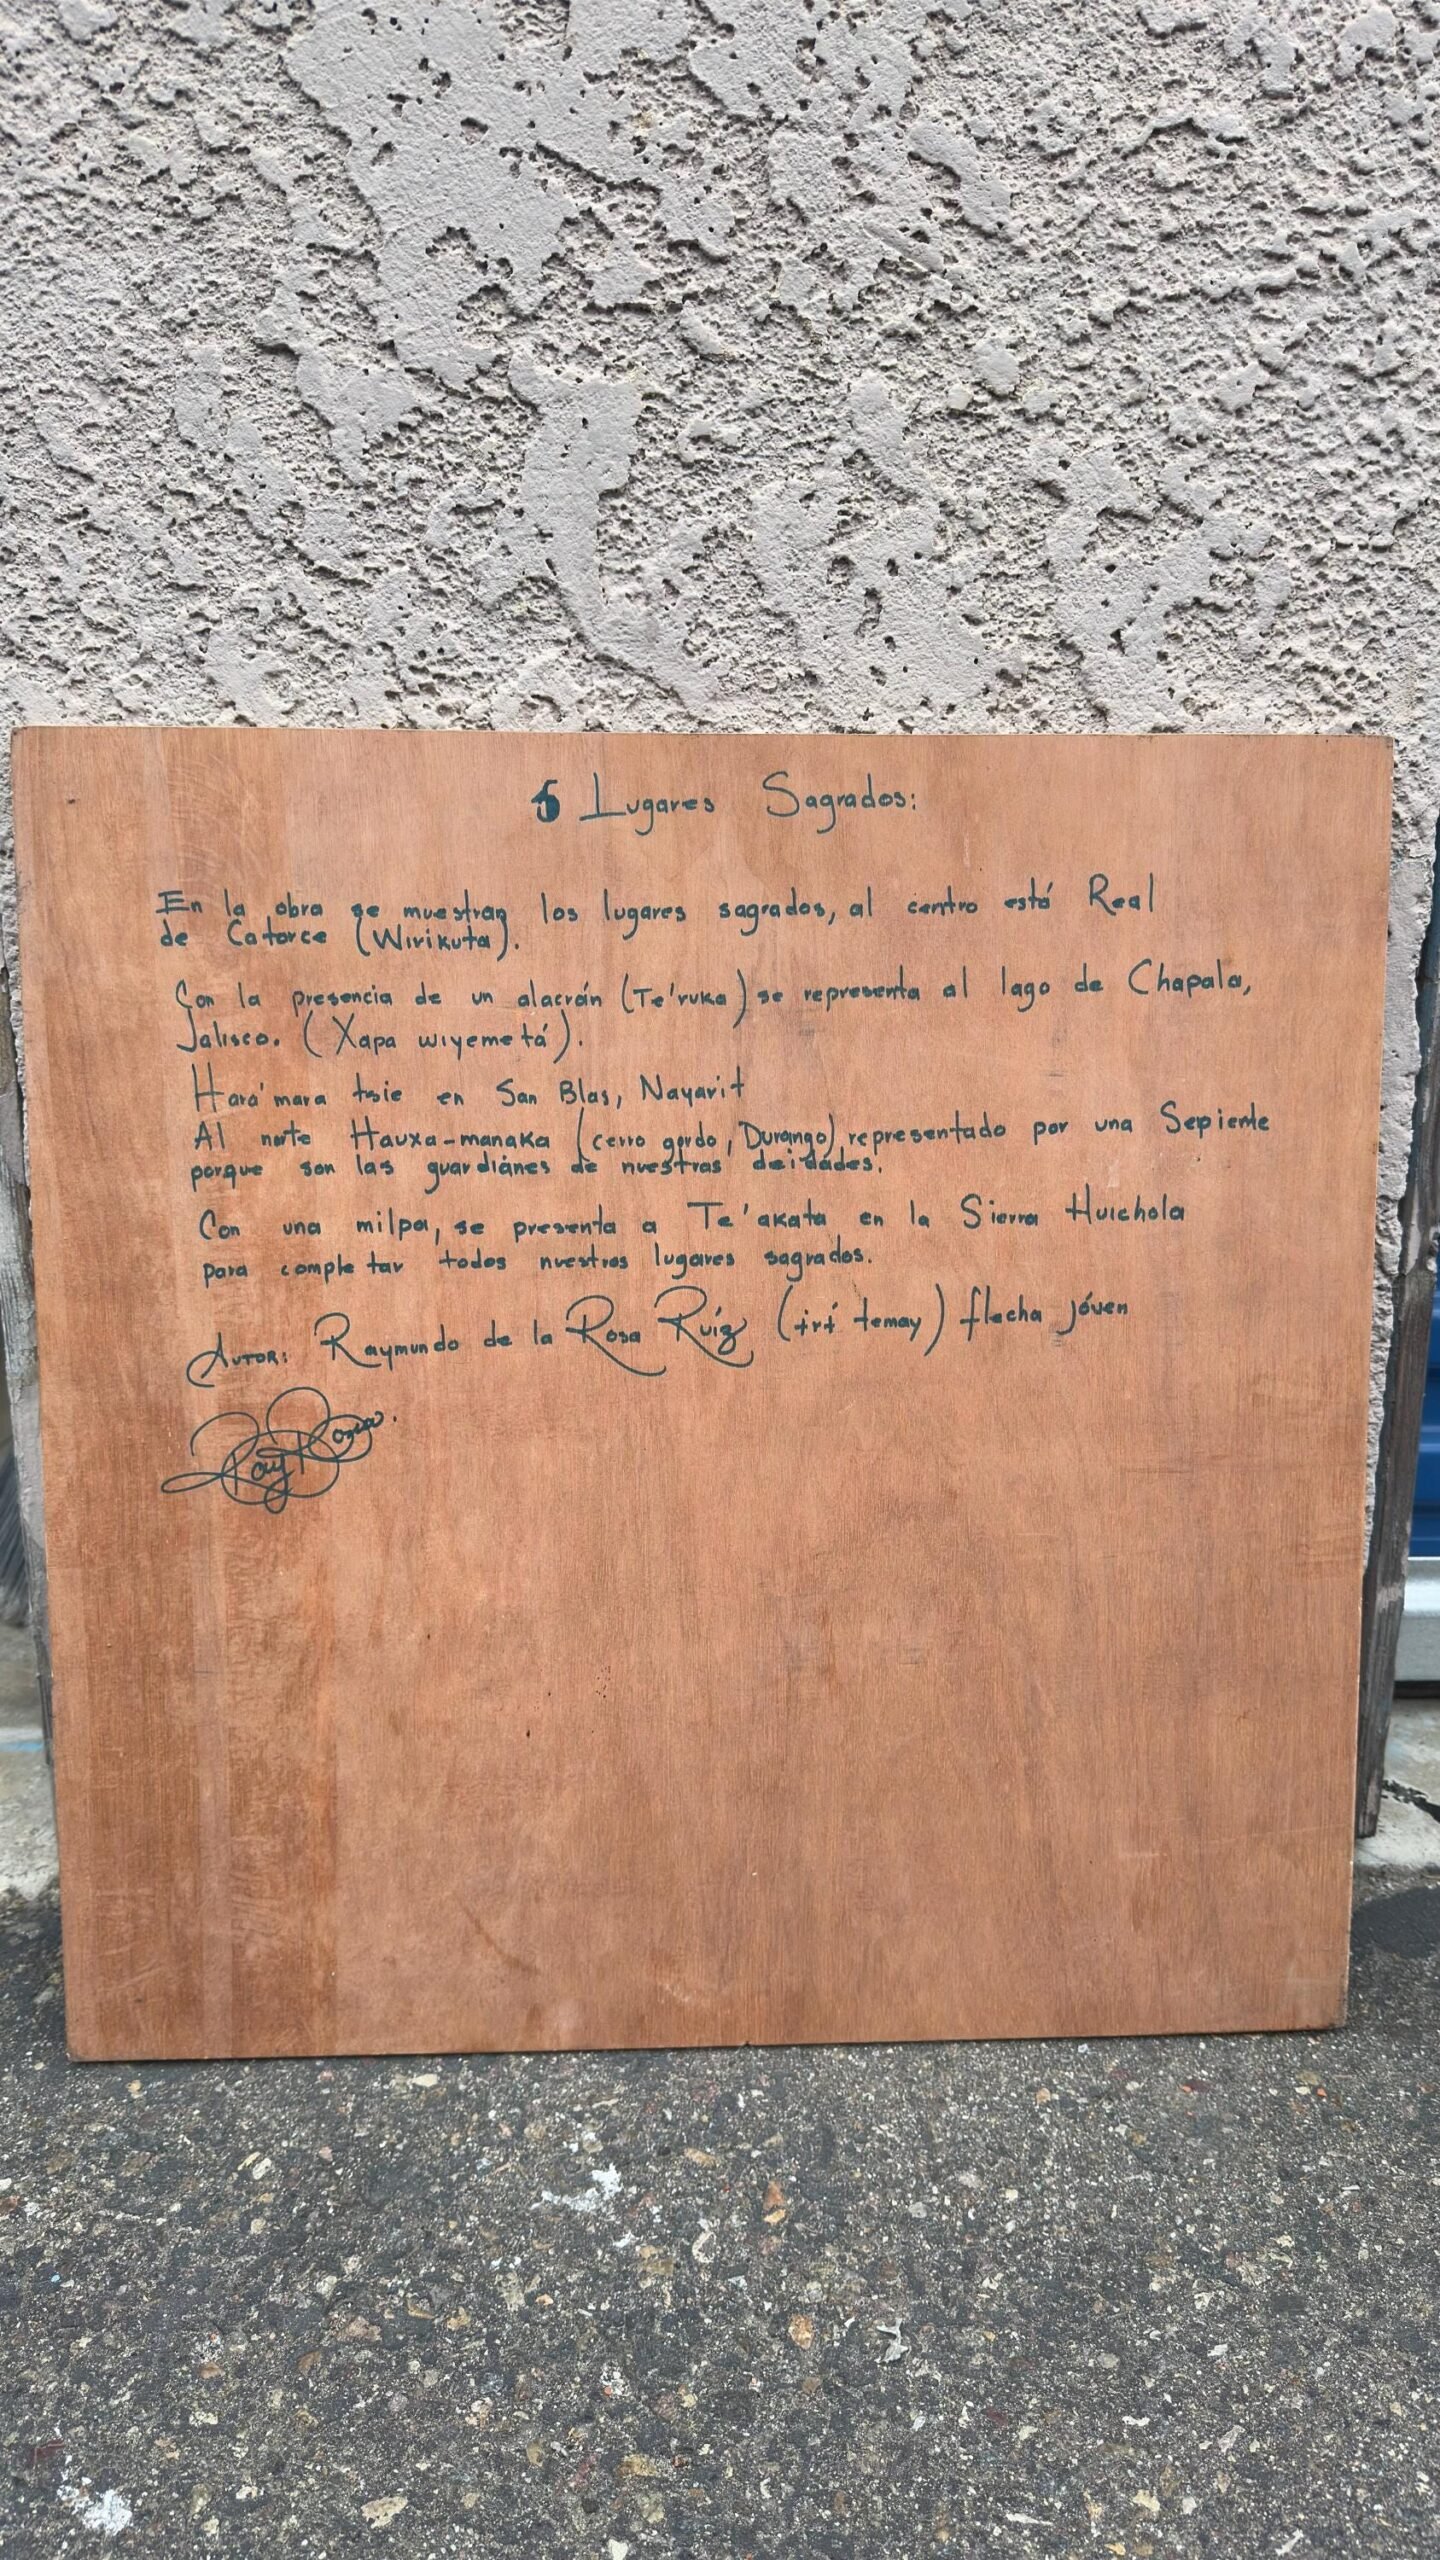 5 Lugares Sagrados:
En la obra se muestran los lugares sagrados, al centro está Real
de Catorce (Wirikuta).
Con la presencia de un alacrán (Te'ruka) se representa al lago de Chapala,
Jalisco. (Xapa wiyemetá).
Hara'mara tsie en San Blas, Nayarit
Al norte Hauxa-manaka (cerro gordo, Durango) representado por una Sepiente
porque son las guardiánes de nuestras deidades.
Con una milpa, se presenta a Te'akata en la Sierra Huichola
para completar todos nuestros lugares sagrados.
Autor: Raymundo de la Rosa Ruíz (+r+́ temay) flecha jóven
Ray Rosa.